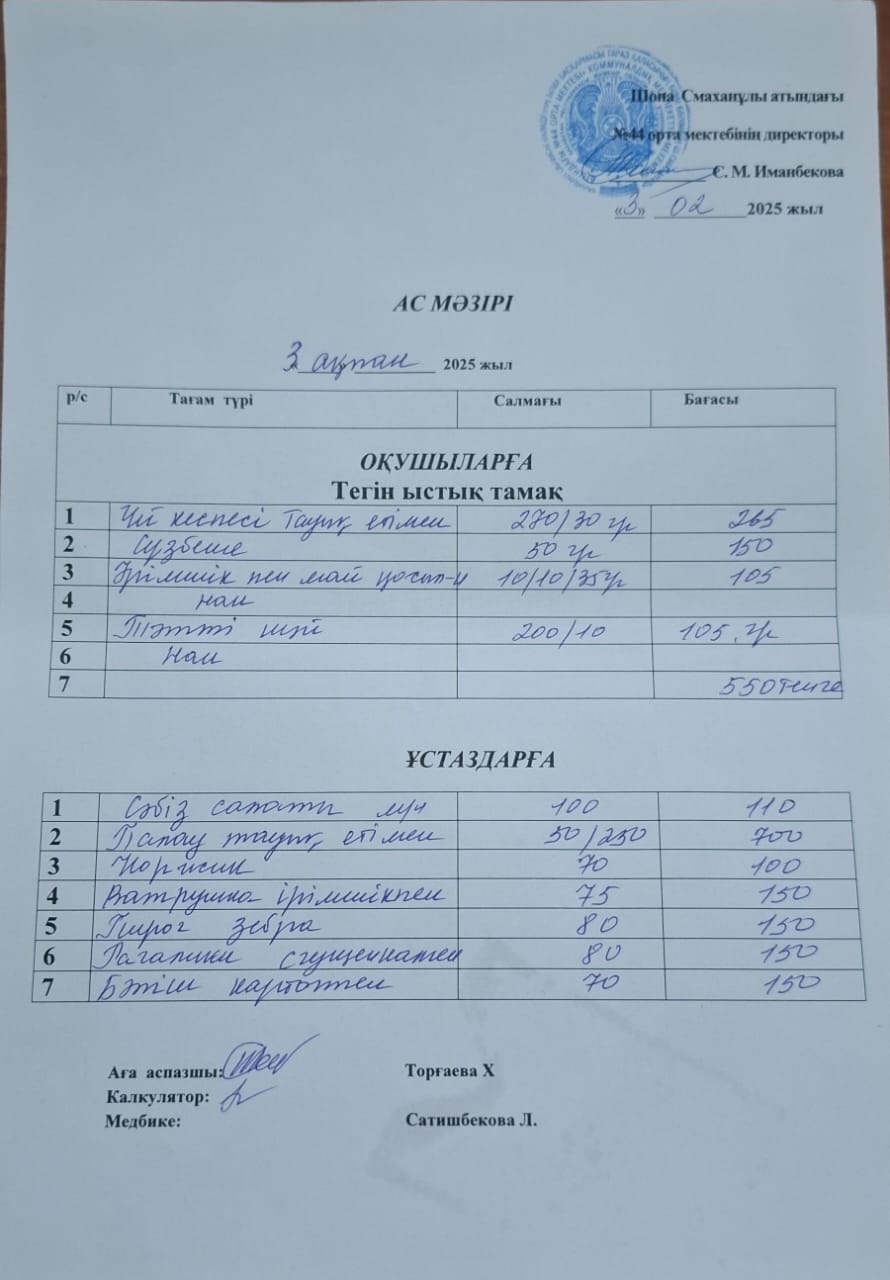 Шона Смаханұлы атындағы
№44 орта мектебінің директоры
С. М. Иманбекова
«3» 02 2025 жыл
АС МӘЗІРІ
« 3 ақпан 2025 жыл
р/с Тағам түрі Салмағы Бағасы
ОҚУШЫЛАРҒА
Тегін ыстық тамақ
1 Үй кеспесі Тауық етімен 270/30 гр 265
2 Сүзбеше 50 гр 150
3 Ірімшік пен май қосыл-н 10/10/35гр 105
4 нан
5 Тәтті шәй 200/10 105. гр
6 Нан
7 550 теңге
ҰСТАЗДАРҒА
1 Сәбіз салаты луч 100 110
2 Палау тауық етімен 50/250 700
3 Коржик 70 100
4 Ватрушка ірімшікпен 75 150
5 Пирог зебра 80 150
6 Рагалики сгущенкамен 80 150
7 Бәтіш картоппен 70 150
Аға аспазшы: Торғаева Х
Калкулятор:
Медбике: Сатишбекова Л.